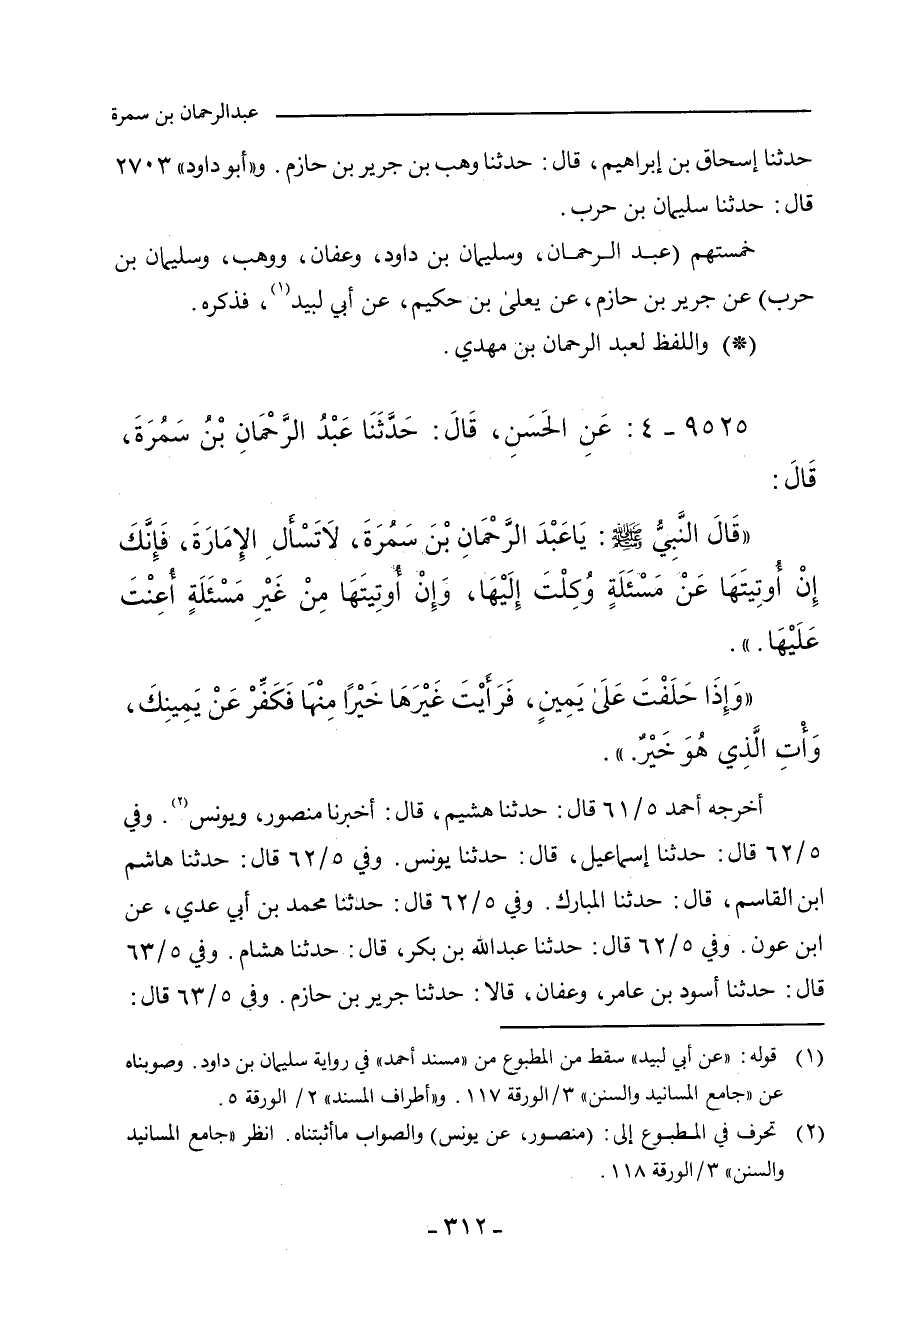 عبدالرحمان بن سمرة
حدثنا إسحاق بن إبراهيم، قال: حدثنا وهب بن جرير بن حازم. و«أبو داود» ٢٧٠٣
قال: حدثنا سليمان بن حرب.
خمستهم (عبد الرحمان، وسليمان بن داود، وعفان، ووهب، وسليمان بن
حرب) عن جرير بن حازم، عن يعلىٰ بن حكيم، عن أبي لبيد(١)، فذكره.
(*) واللفظ لعبد الرحمان بن مهدي.
٩٥٢٥ - ٤: عَنِ الحَسَنِ، قَالَ: حَدَّثَنَا عَبْدُ الرَّحْمَانِ بْنُ سَمُرَةَ،
قَالَ:
«قَالَ النَّبِيُّ ﷺ: يَاعَبْدَ الرَّحْمَانِ بْنَ سَمُرَةَ، لَاتَسْأَلِ الإِمَارَةَ، فَإِنَّكَ
إِنْ أُوتِيتَهَا عَنْ مَسْئَلَةٍ وُكِلْتَ إِلَيْهَا، وَإِنْ أُوتِيتَهَا مِنْ غَيْرِ مَسْئَلَةٍ أُعِنْتَ
عَلَيْهَا.».
«وَإِذَا حَلَفْتَ عَلَىٰ يَمِينٍ، فَرَأَيْتَ غَيْرَهَا خَيْرًا مِنْهَا فَكَفِّرْ عَنْ يَمِينِكَ،
وَأْتِ الَّذِي هُوَ خَيْرٌ.».
أخرجه أحمد ٦١/٥ قال: حدثنا هشيم، قال: أخبرنا منصور، ويونس(٢). وفي
٦٢/٥ قال: حدثنا إسماعيل، قال: حدثنا يونس. وفي ٦٢/٥ قال: حدثنا هاشم
ابن القاسم، قال: حدثنا المبارك. وفي ٦٢/٥ قال: حدثنا محمد بن أبي عدي، عن
ابن عون. وفي ٦٢/٥ قال: حدثنا عبدالله بن بكر، قال: حدثنا هشام. وفي ٦٣/٥
قال: حدثنا أسود بن عامر، وعفان، قالا: حدثنا جرير بن حازم. وفي ٦٣/٥ قال:
(١) قوله: «عن أبي لبيد» سقط من المطبوع من «مسند أحمد» في رواية سليمان بن داود. وصوبناه
عن «جامع المسانيد والسنن» ٣/الورقة ١١٧. و«أطراف المسند» ٢/ الورقة ٥.
(٢) تحرف في المطبوع إلى: (منصور، عن يونس) والصواب ماأثبتناه. انظر «جامع المسانيد
والسنن» ٣/الورقة ١١٨.
- ٣١٢ -